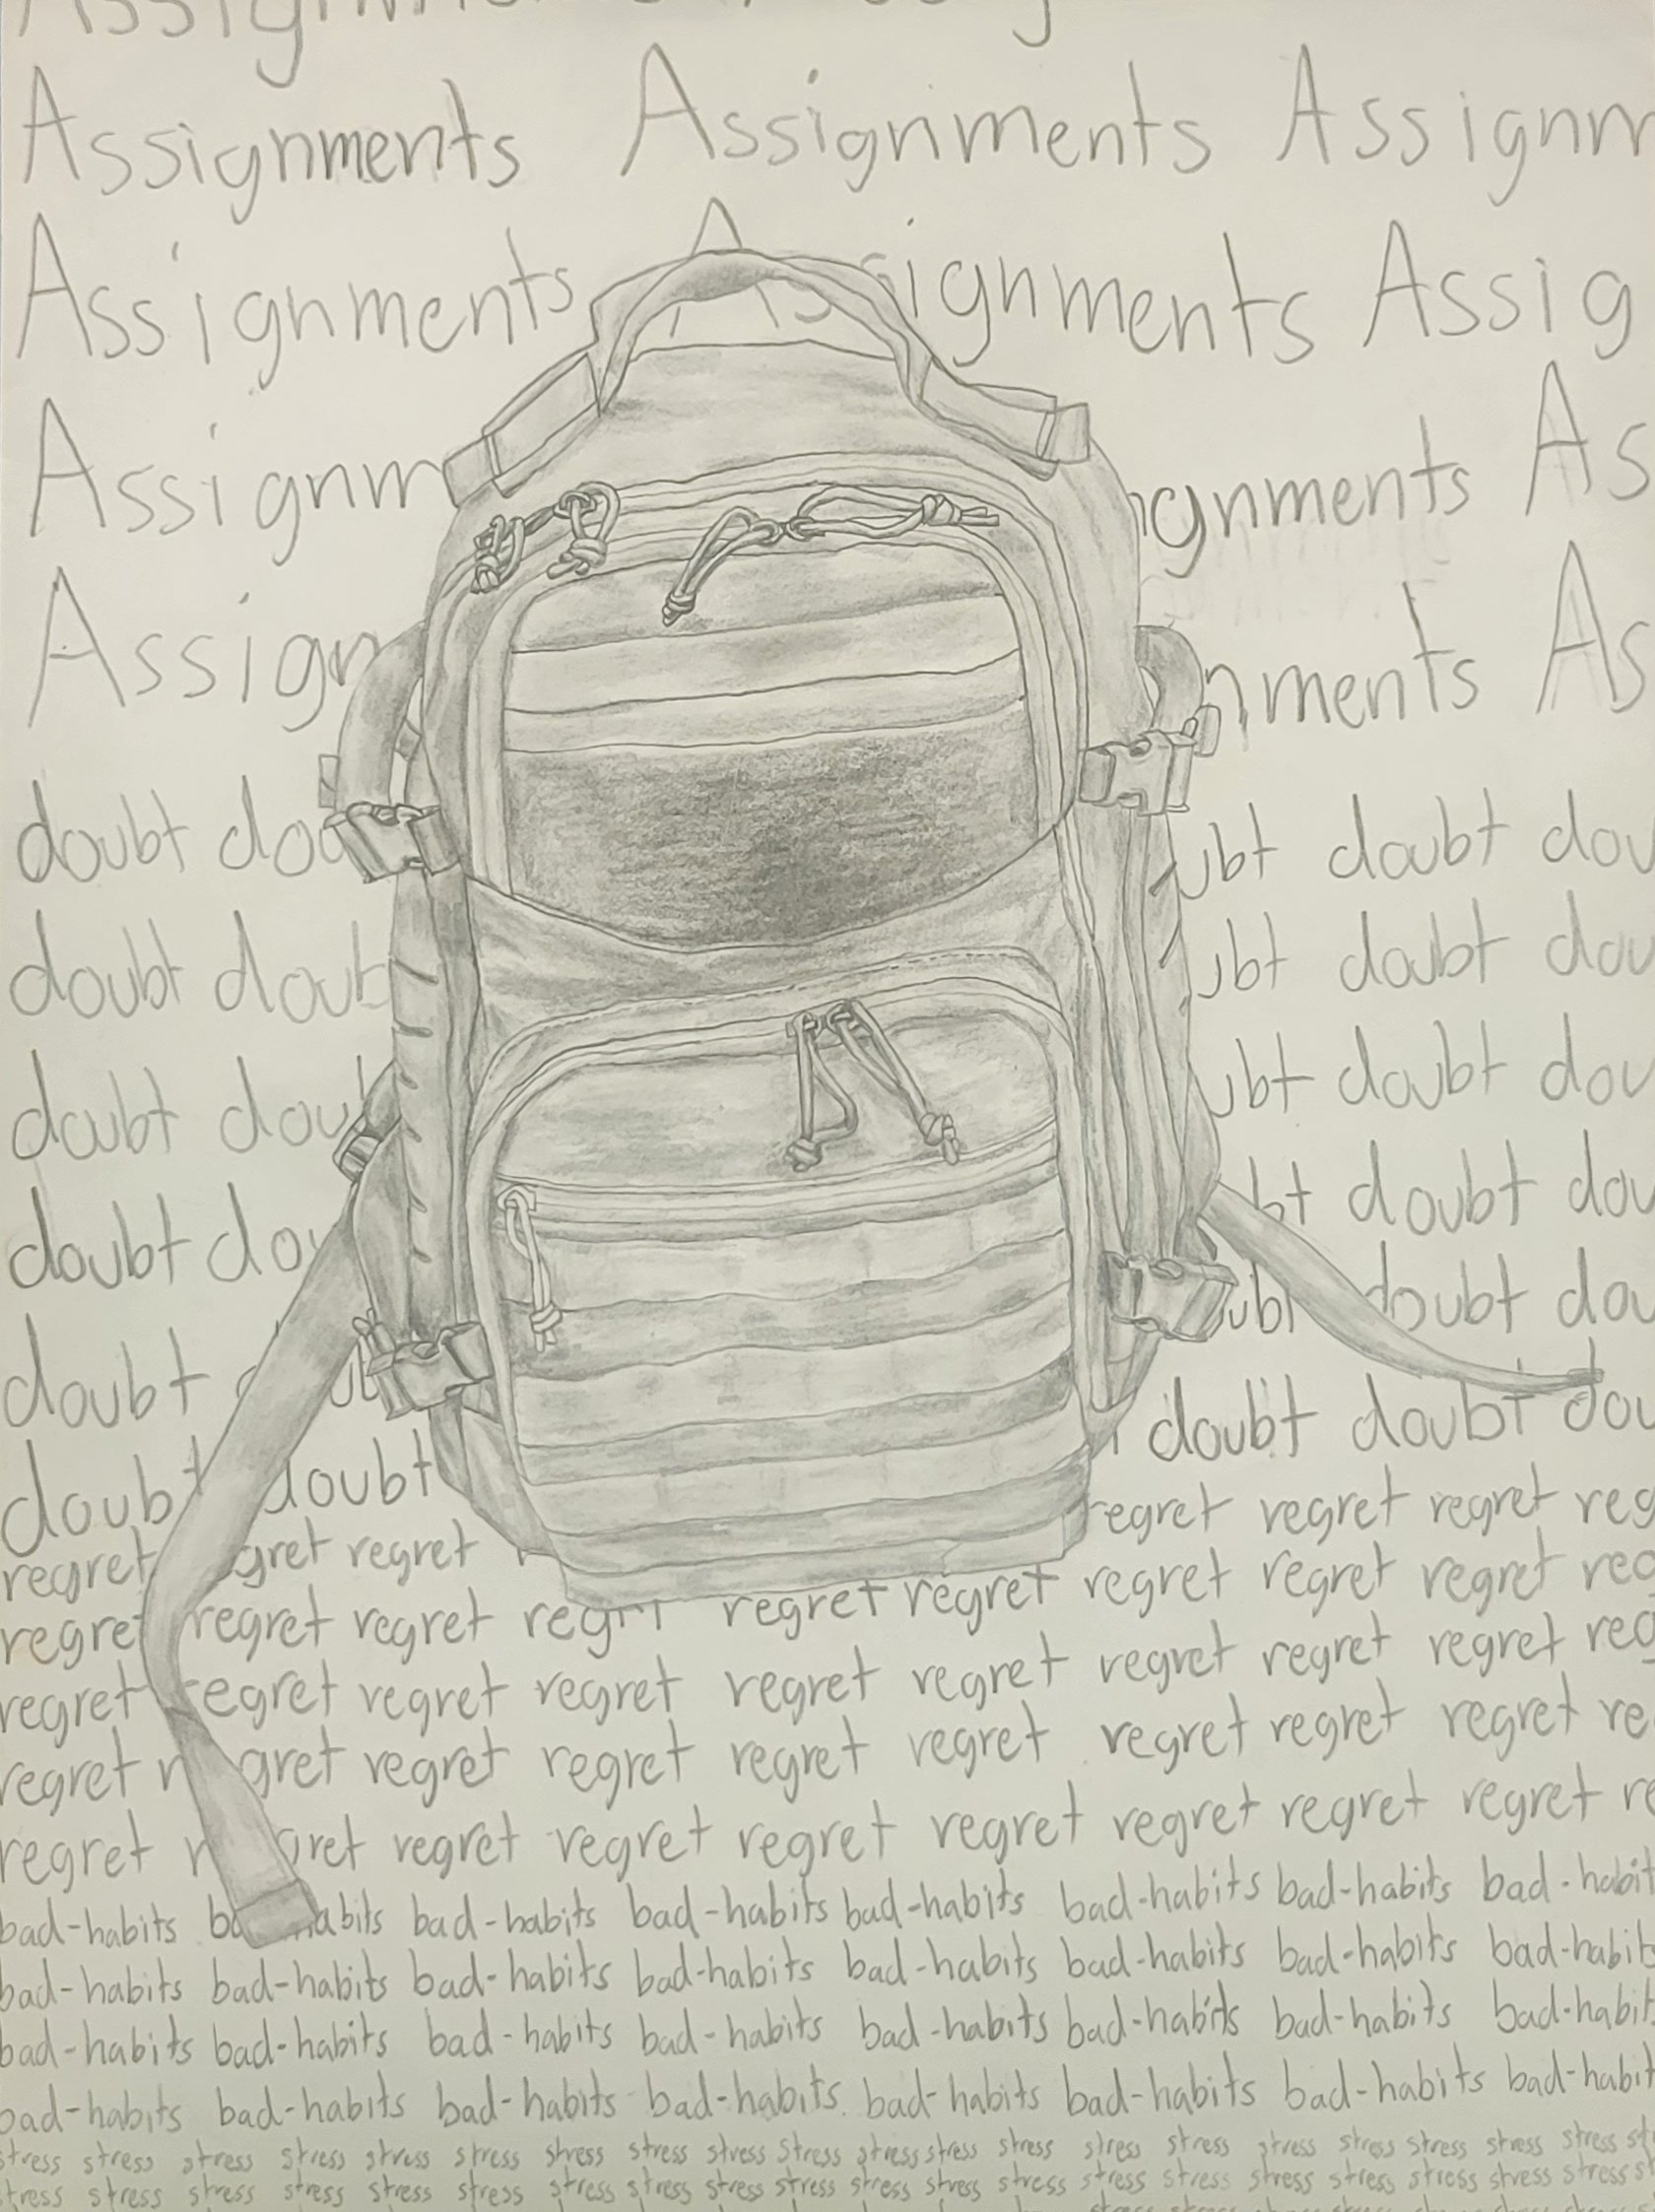 Assignments Assignments Assignm
Assignments As ignments Assig
Assignm ignments As
Assign nments As
doubt dou ubt doubt dou
doubt doubt ubt doubt dou
doubt dou ubt doubt dou
doubt dou bt doubt dou
doubt ubt ubt doubt dou
doubt doubt doubt doubt dou
regret gret regret egret regret regret reg
regret regret regret regr regret regret regret regret regret reg
regret egret regret regret regret regret regret regret regret reg
regret r gret regret regret regret regret regret regret regret re
regret r gret regret regret regret regret regret regret regret re
bad-habits ba abits bad-habits bad-habits bad-habits bad-habits bad-habits bad-habit
bad-habits bad-habits bad-habits bad-habits bad-habits bad-habits bad-habits bad-habits
bad-habits bad-habits bad-habits bad-habits bad-habits bad-habits bad-habits bad-habit
bad-habits bad-habits bad-habits bad-habits bad-habits bad-habits bad-habits bad-habit
stress stress stress stress stress stress stress stress stress stress stress stress stress stress stress stress stress stress stress stress st
stress stress stress stress stress stress stress stress stress stress stress stress stress stress stress stress stress stress stress stress st